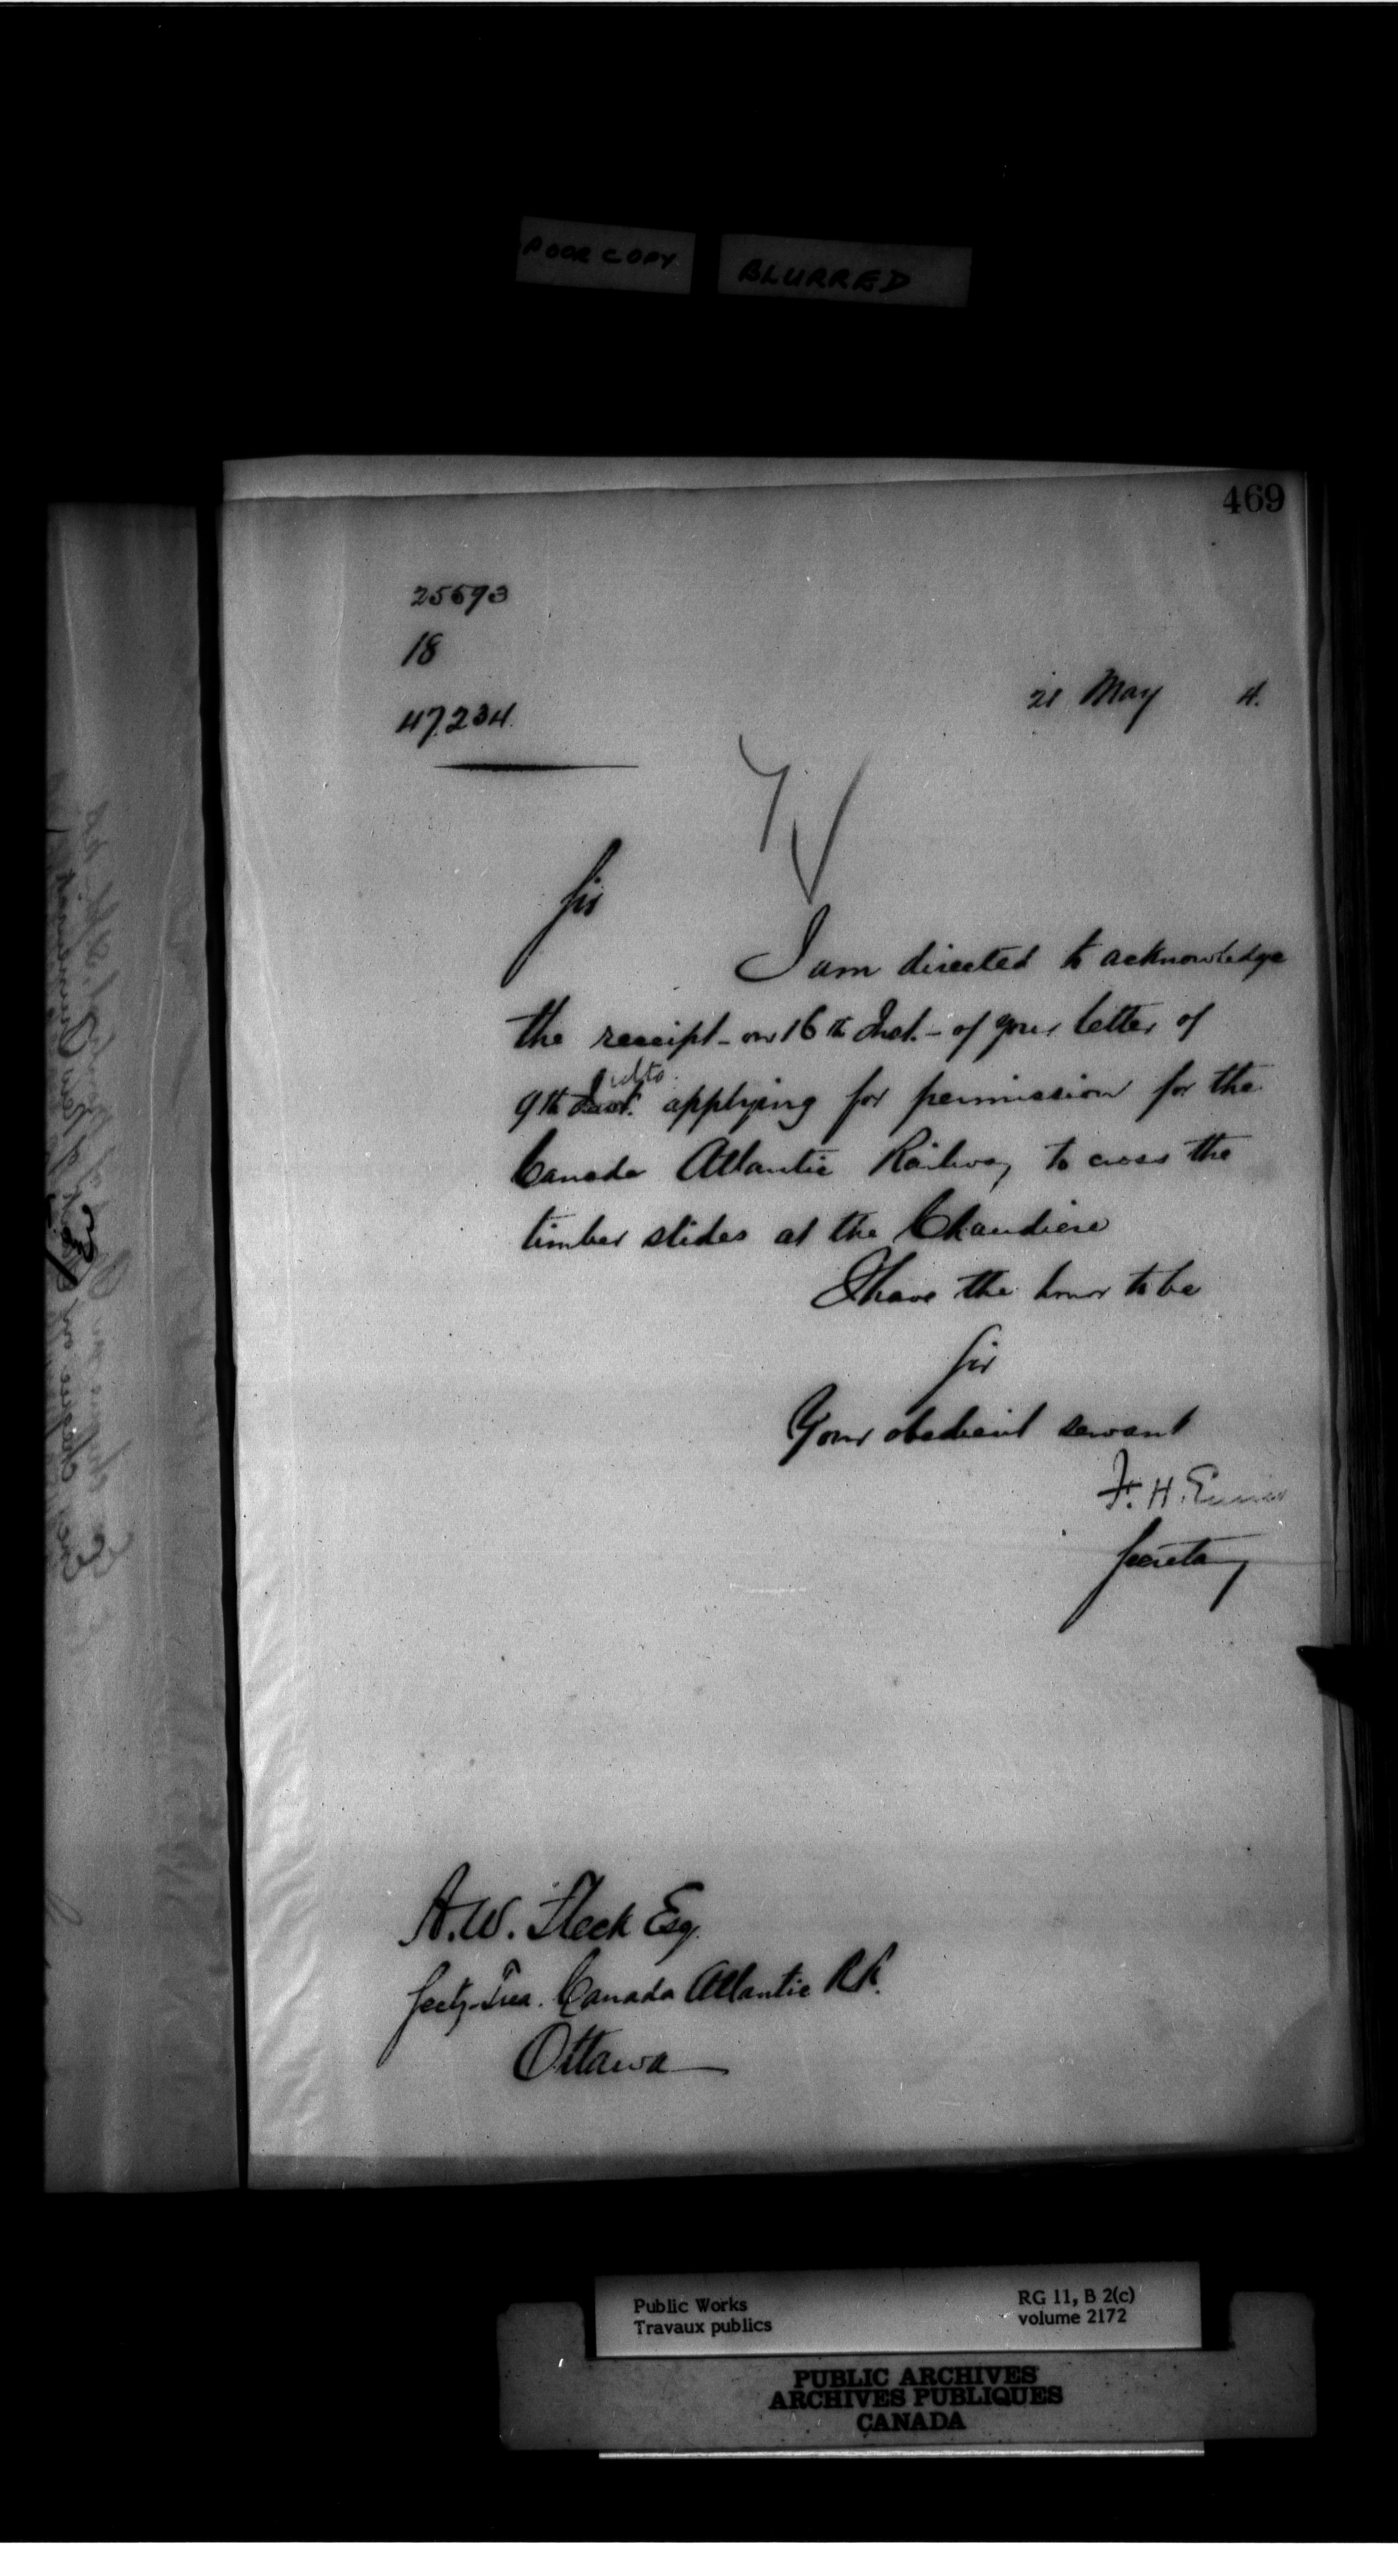 POOR COPY BLURRED
469
25693
18
47,234
21 May 4.
Sir
I am directed to acknowledge
the receipt - on 16th Inst. - of your letter of
9th applying for permission for the
Canada Atlantic Railway to cross the
timber slides at the Chaudiere
I have the honor to be
Sir
Your obedient servant
F. H. Ennis
Secretary
A. W. Fleck Esq.
Secty-Trea. Canada Atlantic RR.
Ottawa
Public Works
Travaux publics
RG 11, B 2(c)
volume 2172
PUBLIC ARCHIVES
ARCHIVES PUBLIQUES
CANADA